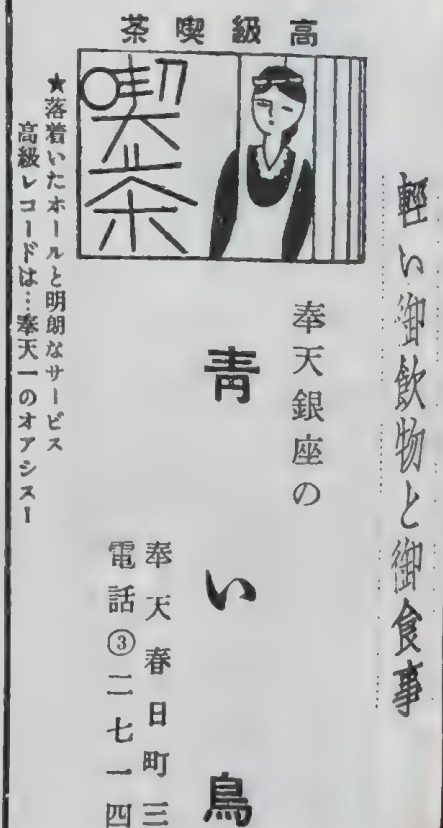 輕い御飲物と御食事
高級喫茶
喫茶
奉天銀座の
青い鳥
奉天春日町三
電話③二七一四
★落着いたホールと明朗なサービス
高級レコードは…奉天一のオアシス!